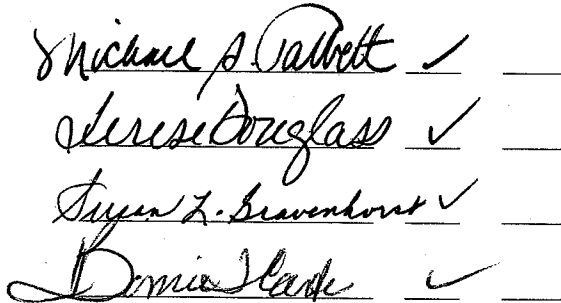 Michael S. Talbett ✓
Terese Douglass ✓
Susan L. Gravenhorst ✓
Bonnie